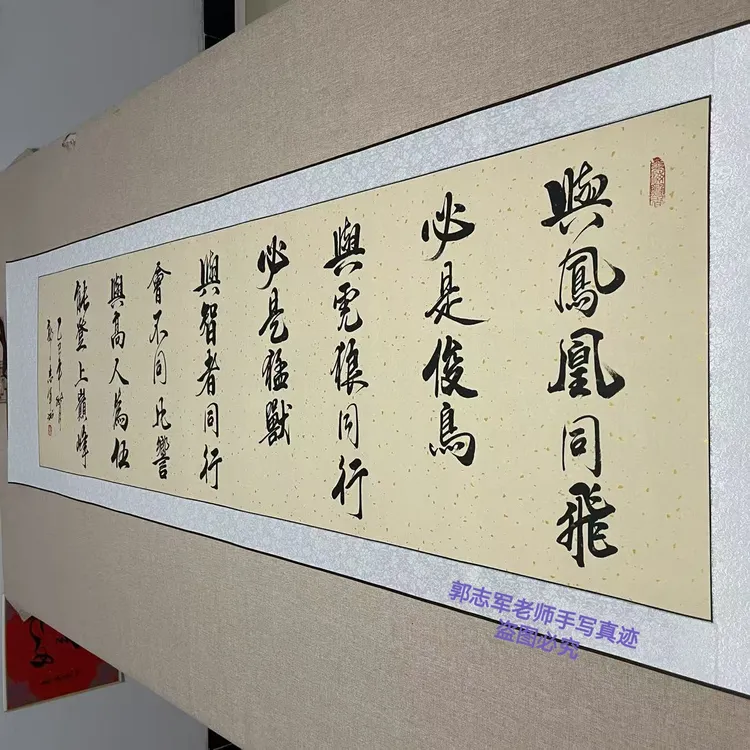 與鳳凰同飛
必是俊鳥
與虎狼同行
必是猛獸
與智者同行
會不同凡響
與高人為伍
能登上巔峰
郭志军老师手写真迹
盗图必究